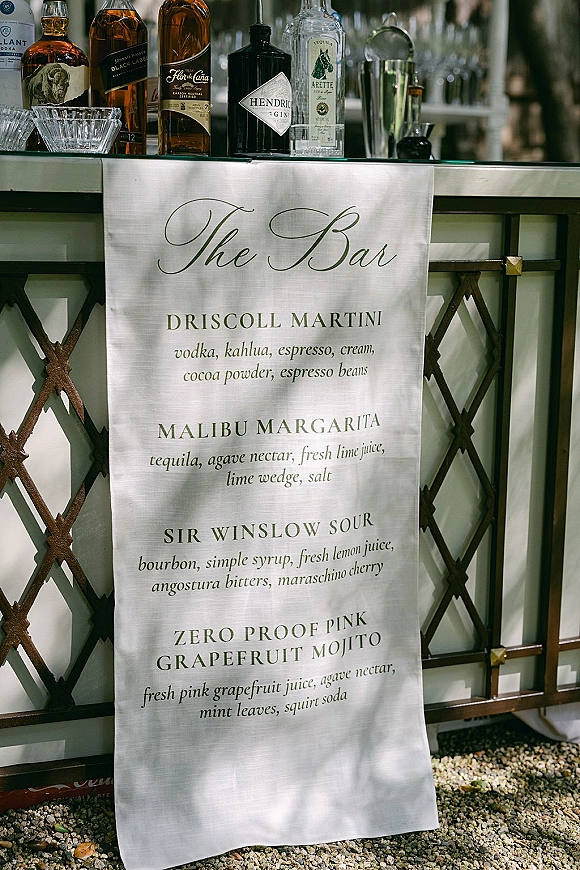 LLANT
VODKA
JOHNNIE WALKER
BLACK LABEL
12
Flor de Caña
7
HENDRICK
GIN
TEQUILA
ARETTE
The Bar
DRISCOLL MARTINI
vodka, kahlua, espresso, cream,
cocoa powder, espresso beans
MALIBU MARGARITA
tequila, agave nectar, fresh lime juice,
lime wedge, salt
SIR WINSLOW SOUR
bourbon, simple syrup, fresh lemon juice,
angostura bitters, maraschino cherry
ZERO PROOF PINK
GRAPEFRUIT MOJITO
fresh pink grapefruit juice, agave nectar,
mint leaves, squirt soda